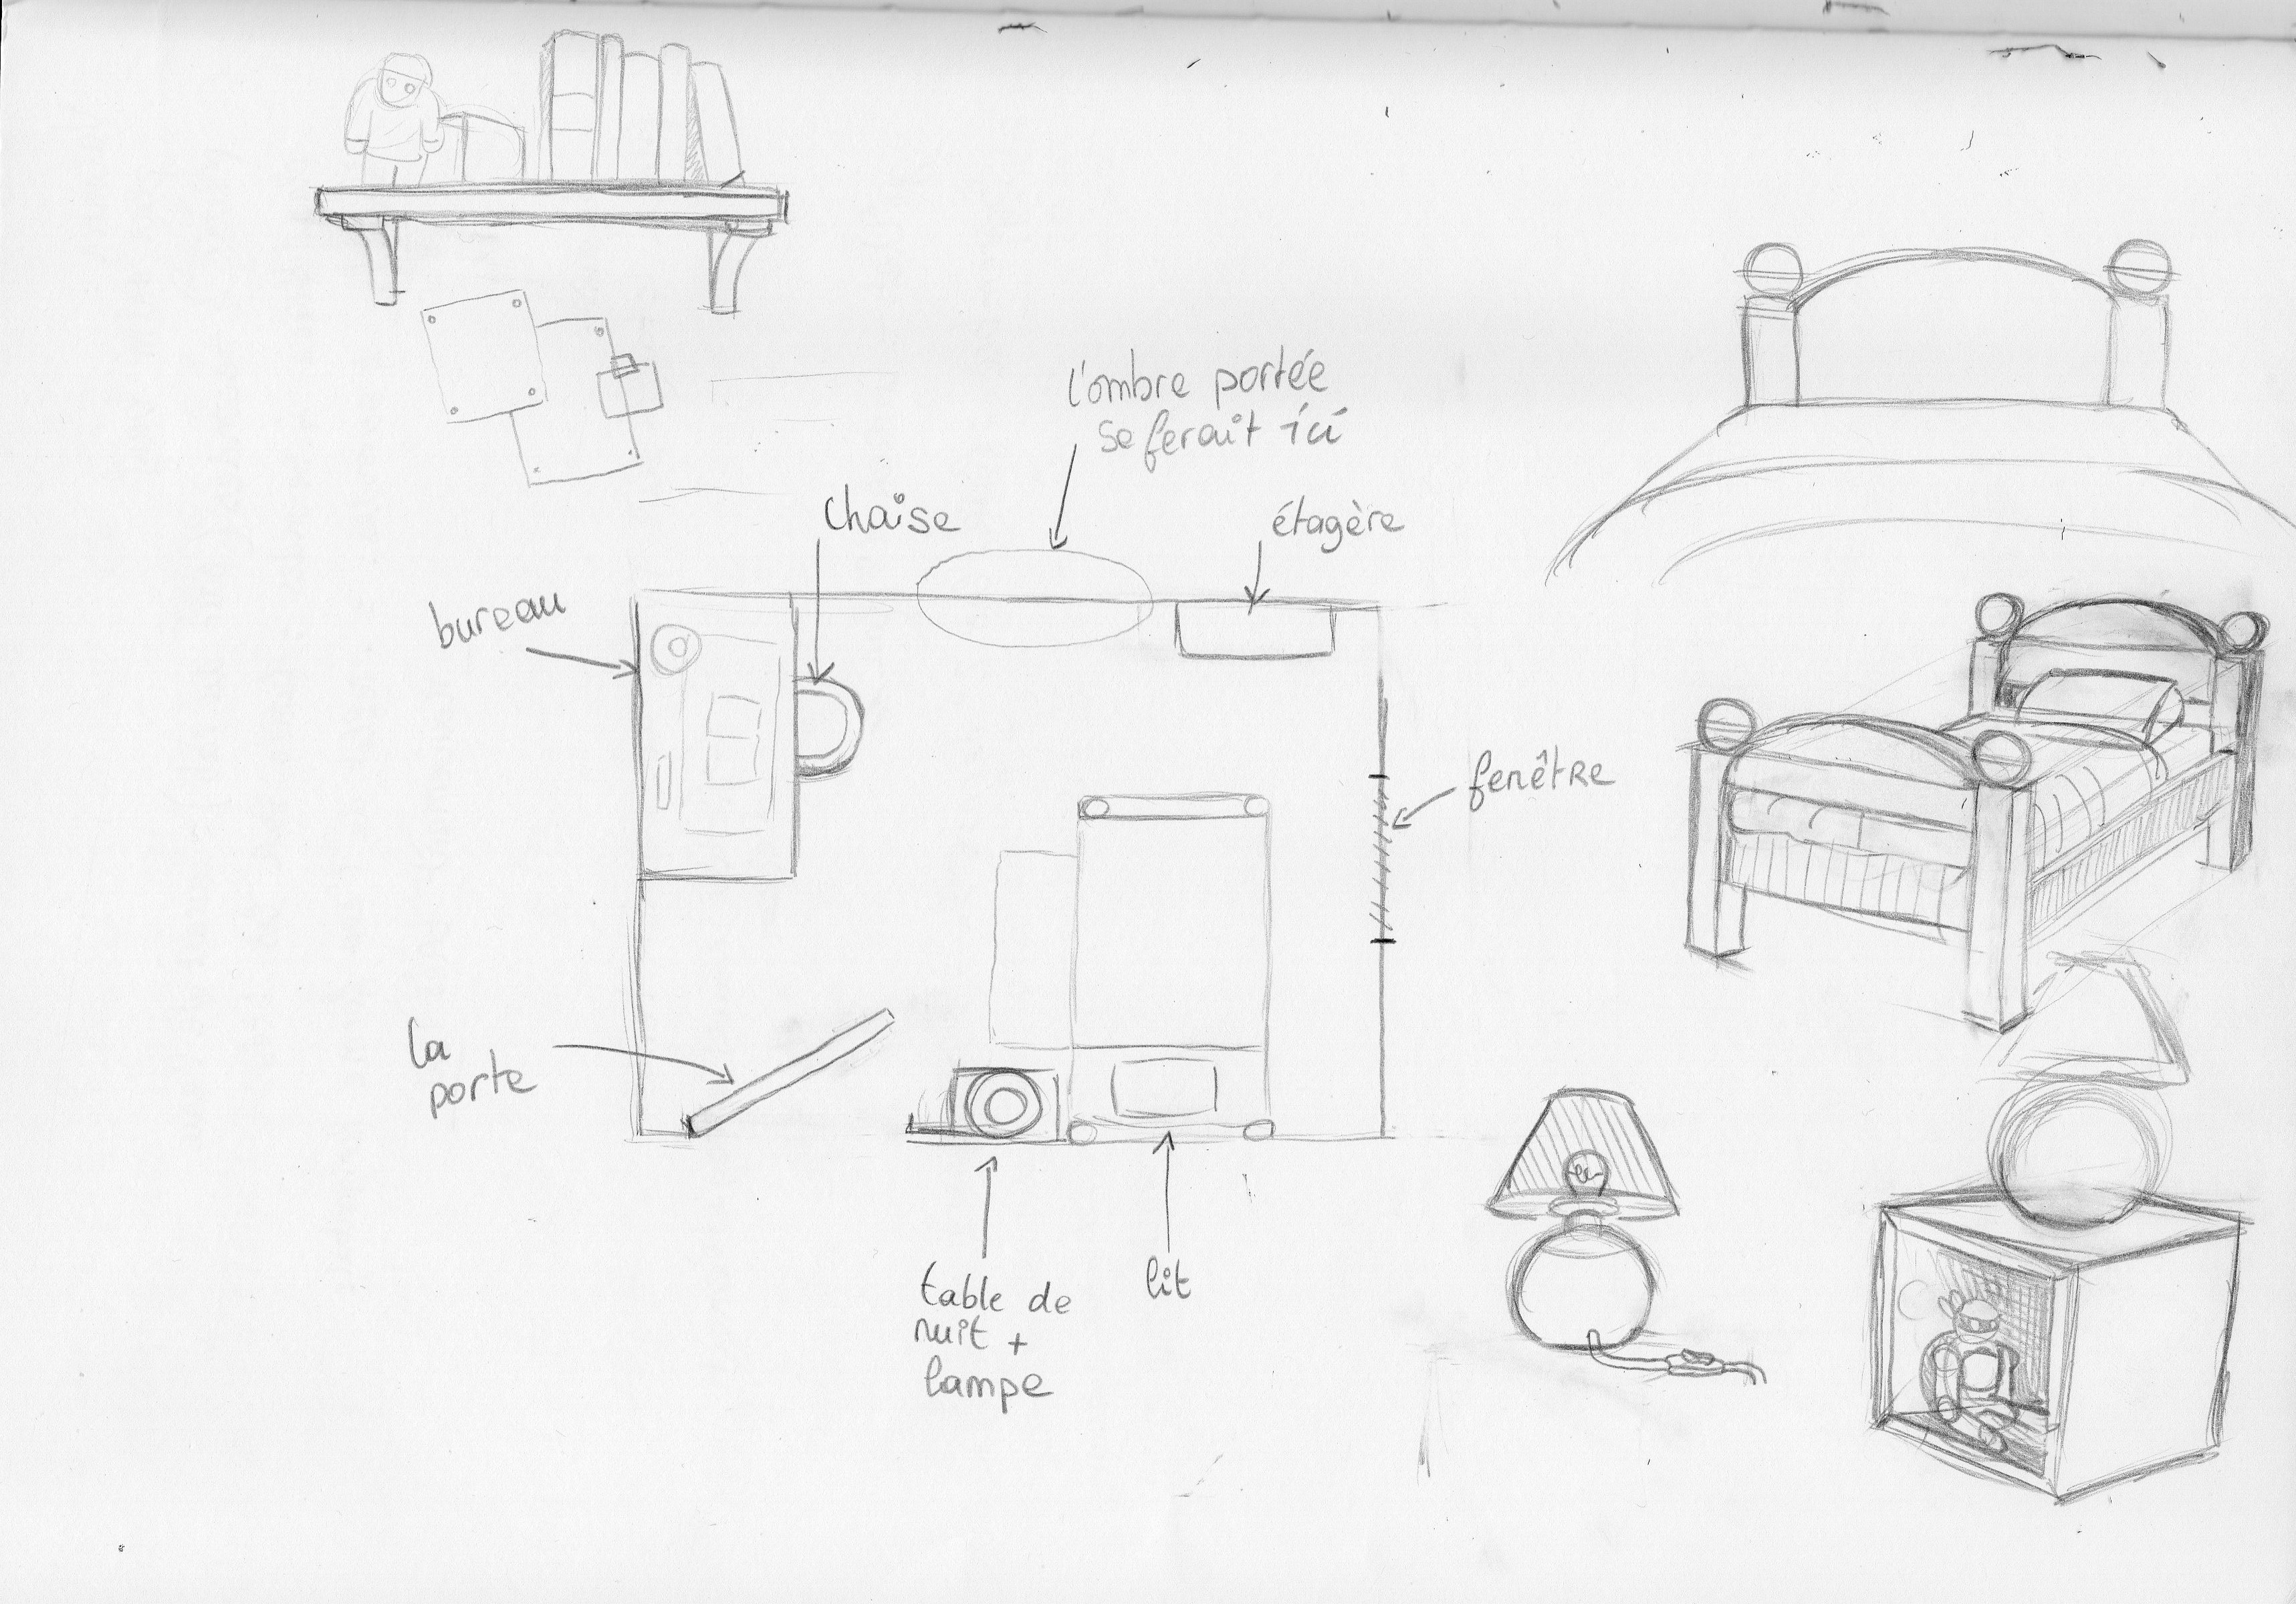 l'ombre portée
se ferait ici
chaise
étagère
bureau
fenêtre
la
porte
table de
nuit +
lampe
lit